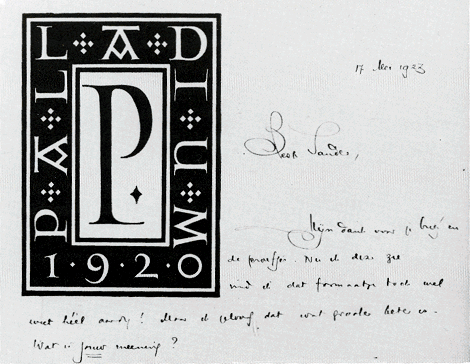 PALLADIUM
P
1·9·2·0
17 Mei 1923
Beste Sander,
Mijn dank voor je brief en
de proefjes. Nu ik deze zie
vind ik dat formaatje toch wel
niet héél aardig! Maar ik geloof dat wat grooter beter is.
Wat is jouw meening?